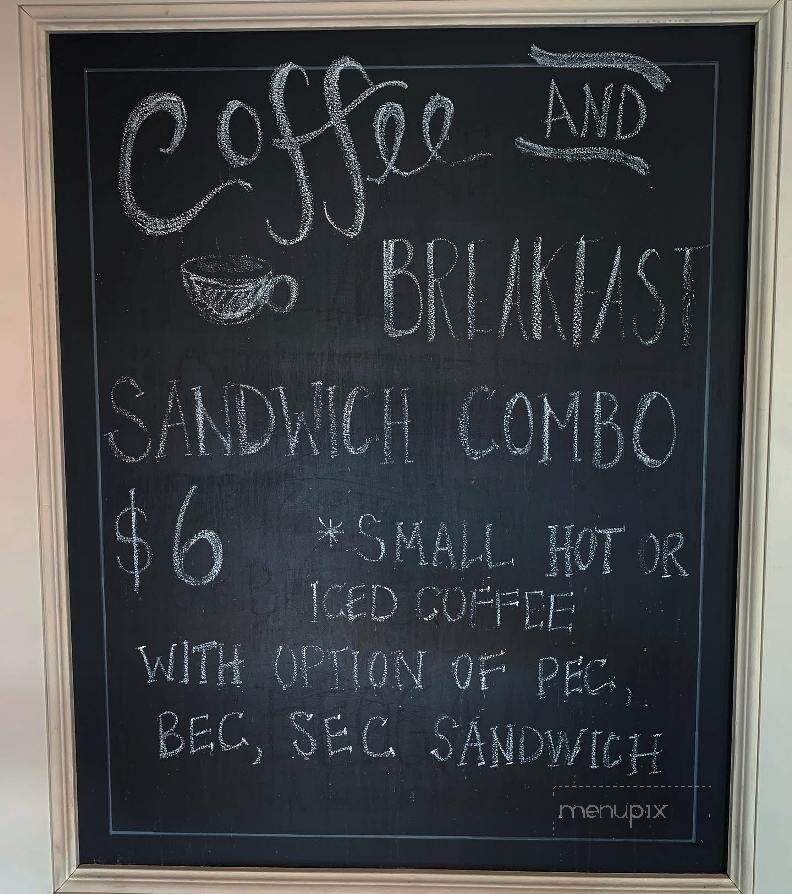 Coffee AND
BREAKFAST
SANDWICH COMBO
$6 *SMALL HOT OR
ICED COFFEE
WITH OPTION OF PEC,
BEC, SEC SANDWICH
menupix